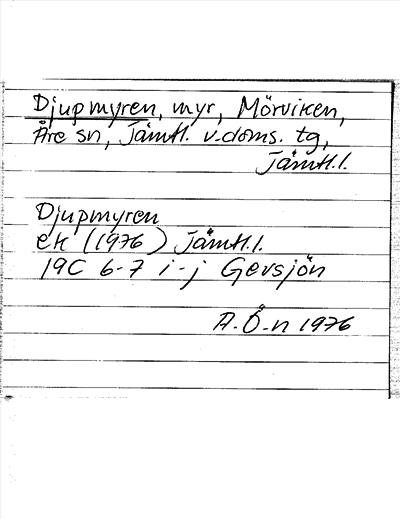 Djupmyren, myr, Mörviken,
Åre sn, Jämtl. v. doms. tg,
Jämtl. l.
Djupmyren
ek (1976) Jämtl. l.
19C 6-7 i-j Gevsjön
A. Ö-n 1976